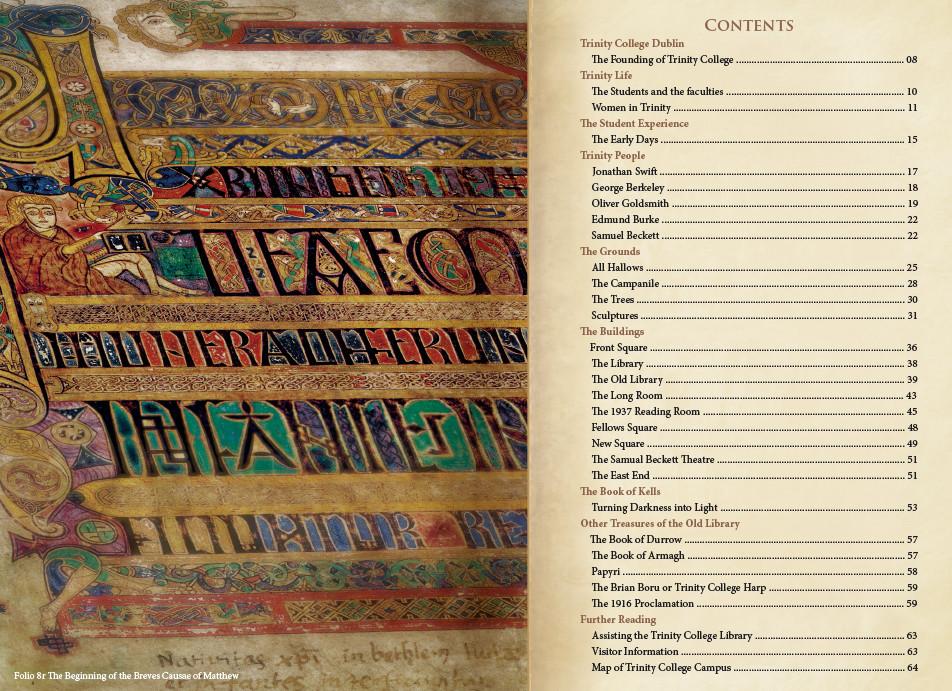 Nativitas xpi in bethlem
Folio 8r The Beginning of the Breves Causae of Matthew
Contents
Trinity College Dublin
The Founding of Trinity College 08
Trinity Life
The Students and the faculties 10
Women in Trinity 11
The Student Experience
The Early Days 15
Trinity People
Jonathan Swift 17
George Berkeley 18
Oliver Goldsmith 19
Edmund Burke 22
Samuel Beckett 22
The Grounds
All Hallows 25
The Campanile 28
The Trees 30
Sculptures 31
The Buildings
Front Square 36
The Library 38
The Old Library 39
The Long Room 43
The 1937 Reading Room 45
Fellows Square 48
New Square 49
The Samual Beckett Theatre 51
The East End 51
The Book of Kells
Turning Darkness into Light 53
Other Treasures of the Old Library
The Book of Durrow 57
The Book of Armagh 57
Papyri 58
The Brian Boru or Trinity College Harp 59
The 1916 Proclamation 59
Further Reading
Assisting the Trinity College Library 63
Visitor Information 63
Map of Trinity College Campus 64